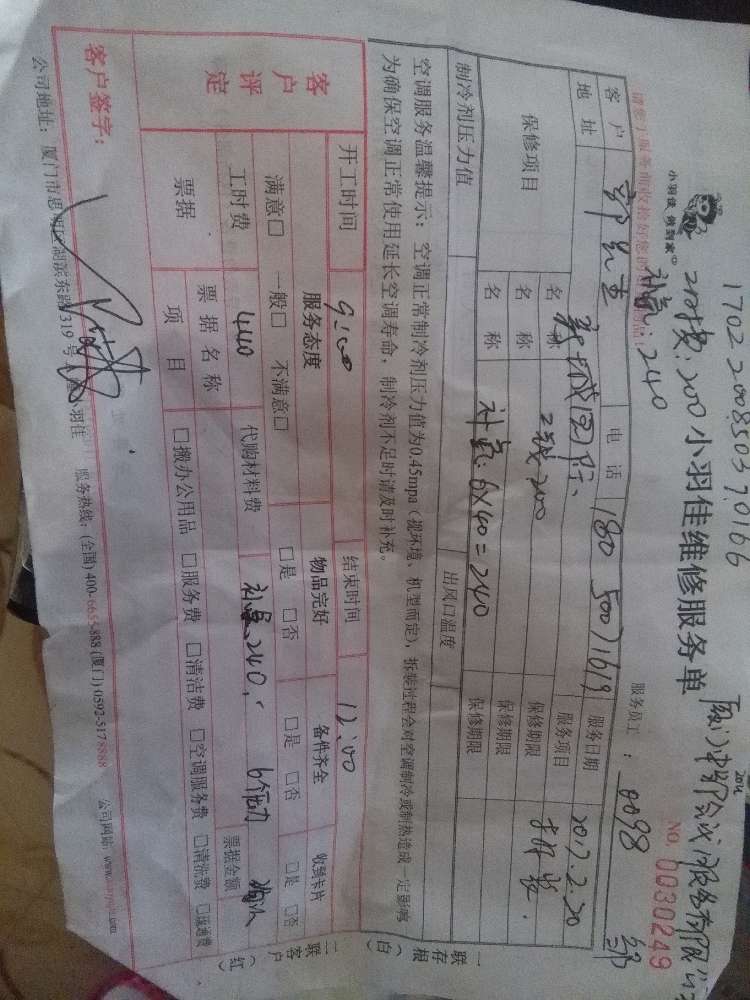 1702200850370166
小羽佳 做到家
工时费:200
补氟:240
小羽佳维修服务单
NO. 0030249
服务员工: 0098
客户
电话 180 50071619
服务日期 2017.2.20
地址
服务项目
保修项目
名称 2拆200
保修期限
名称
保修期限
名称 补氟:6X40=240
保修期限
制冷剂压力值
出风口温度
空调服务温馨提示:空调正常制冷剂压力值为0.45mpa(视环境、机型而定),拆装过程会对空调制冷或制热造成一定影响
为确保空调正常使用延长空调寿命,制冷剂不足时请及时补充。
开工时间 9:00
结束时间 12:00
客户评定
服务态度
物品完好
备件齐全
收到卡片
满意□ 一般□ 不满意□
□是 □否
□是 □否
□是 □否
工时费 440
代购材料费 补氟240, 6个压力
票据
票据名称
票据金额
项目
□搬办公用品 □服务费 □清洁费 □空调服务费 □清洗费 □疏通费
客户签字:
公司地址:厦门市思明区湖滨东路319号
小羽佳 服务热线:(全国)400-6655-888 (厦门)0592-5178888 公司网站:
一联存根(白)
二联客户(红)